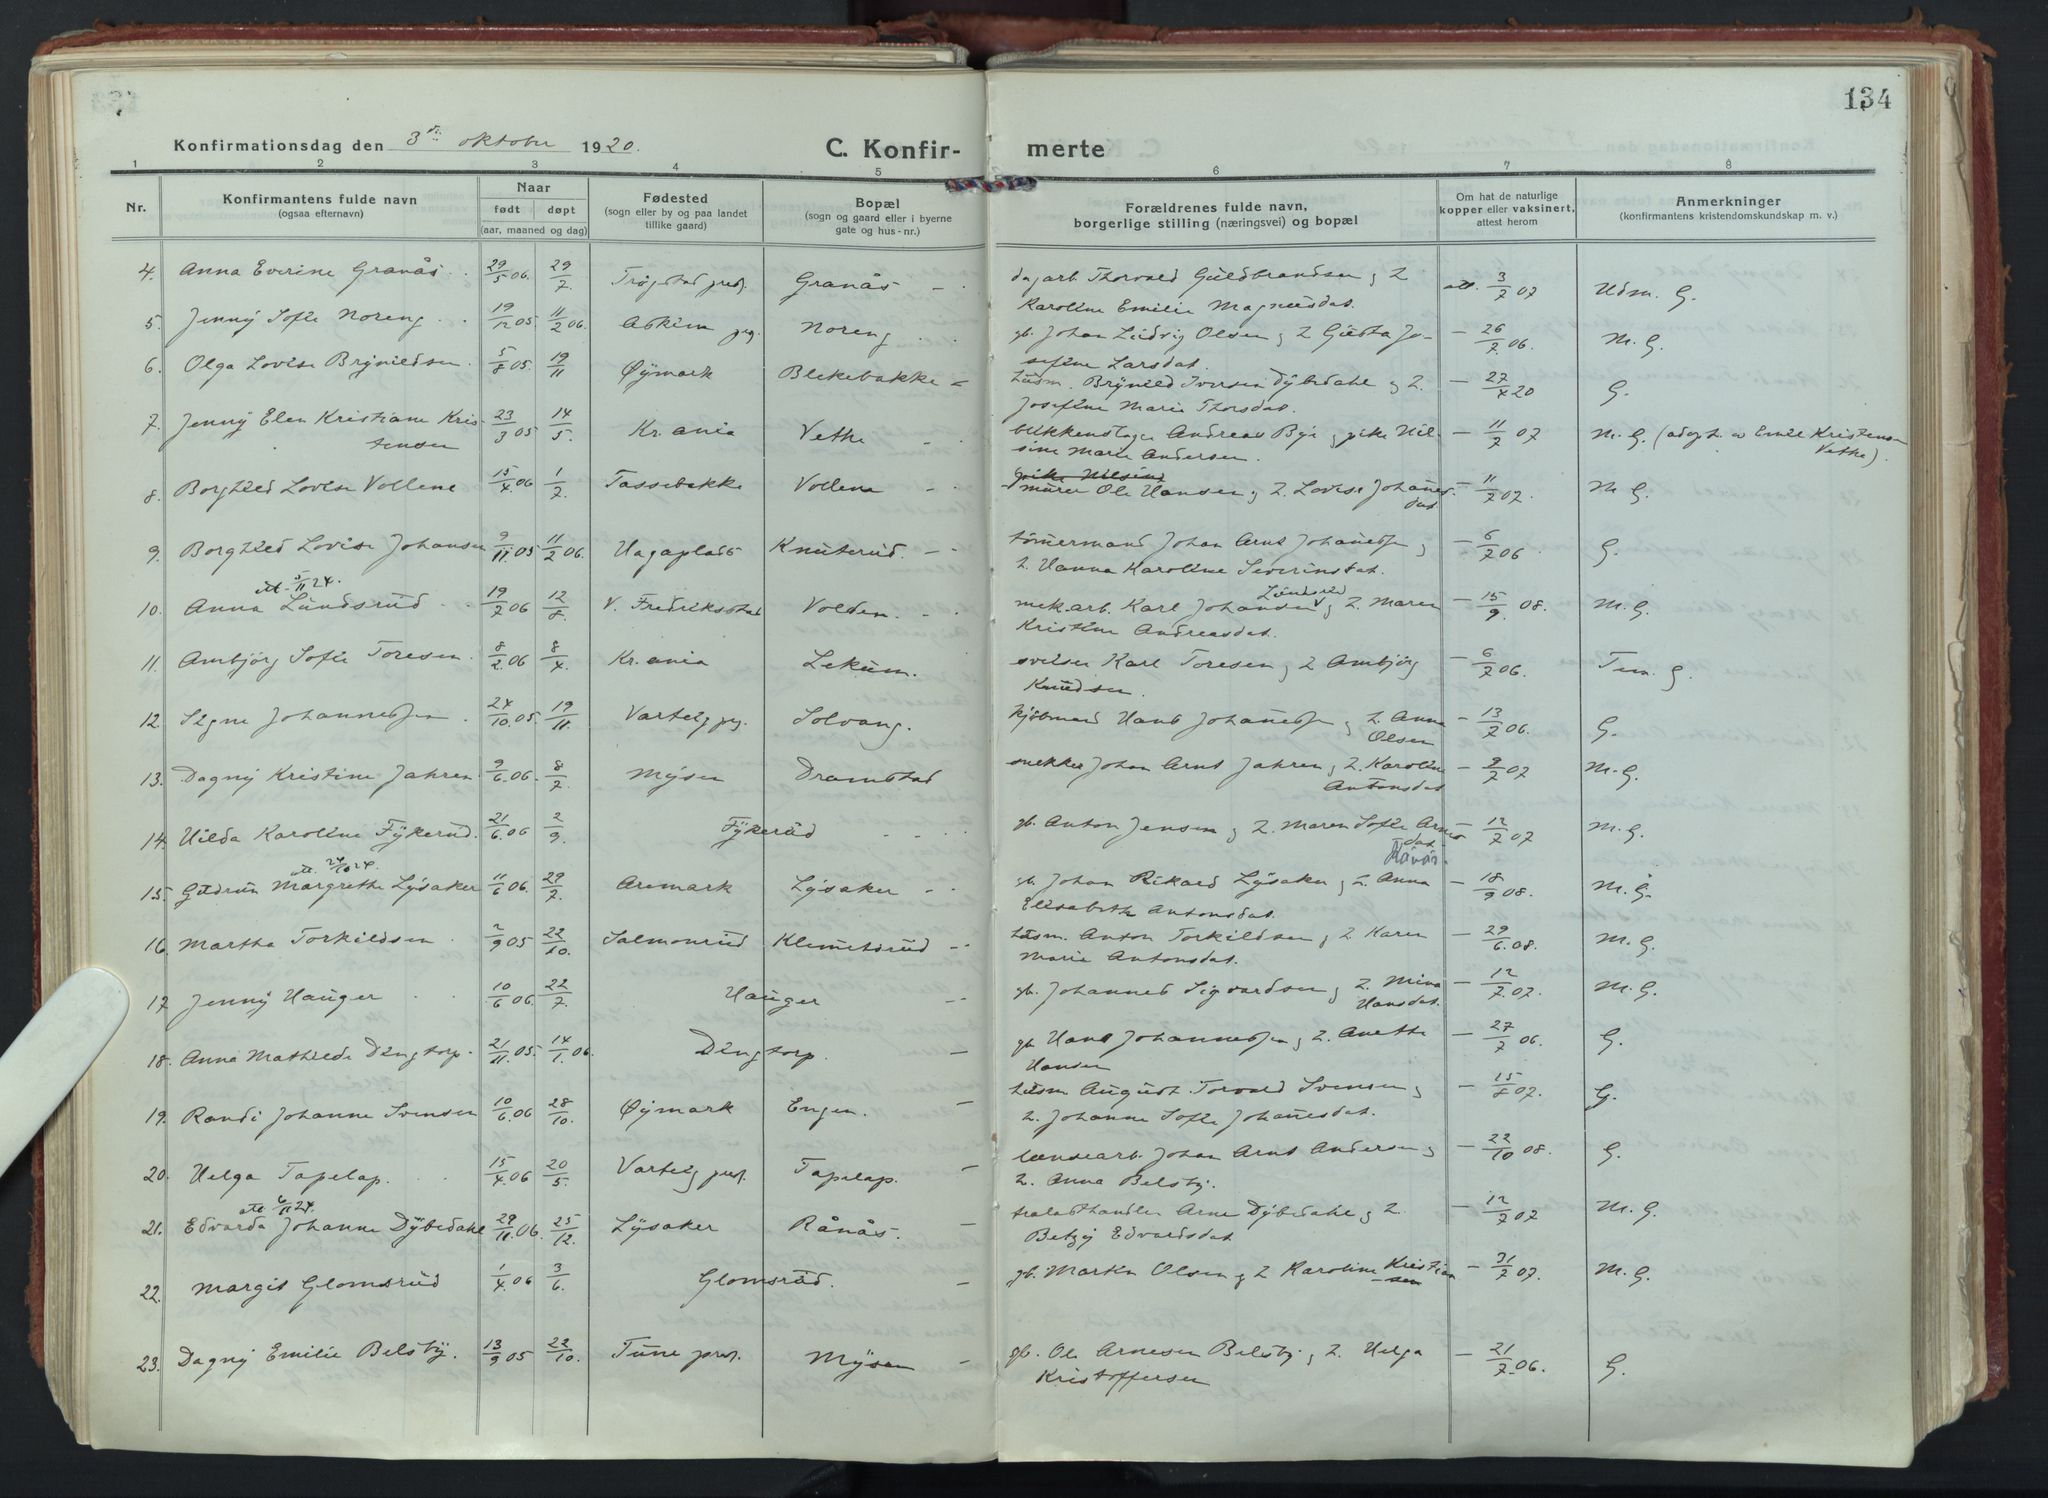 134
Konfirmationsdag den 3die oktober 1920. C. Konfir- merte
1 2 3 4 5 6 7 8
Nr. Konfirmantens fulde navn (ogsaa efternavn) Naar født døpt (aar, maaned og dag) Fødested (sogn eller by og paa landet tillike gaard) Bopæl (sogn og gaard eller i byerne gate og hus-nr.) Forældrenes fulde navn, borgerlige stilling (næringsvei) og bopæl Om hat de naturlige kopper eller vaksinert, attest herom Anmerkninger (konfirmantens kristendomskundskap m. v.)
4. Anna Everine Granås. 29/5 06. 29/7. Trøgstad prest. Granås – dagarb. Thorvald Guldbrandsen og h. att. 3/7 07 Udm. G.
Karoline Emilie Magnusdat.
5. Jenny Sofie Noreng. 19/12 05. 11/2 06. Askim pg. Noreng gb. Johan Ludvig Olsen og h Gusta Jo- – 26/7. 06. M. G.
sefine Larsdat.
6. Olga Lovise Brynildsen. 5/8 05. 19/11 Øymark Blekebakke – husm. Brynild Iversen Dybedahl og h. – 27/4 20 G.
Josefine Marie Thorsdat.
7. Jenny Elen Kristiane Kris- 23/3 05. 14/5. Kr.ania Vethe – blikkenslager Andreas Bye og pike Nil- – 11/7 07 M. G. (adopt. av Emil Kristensen
tensen sine Marie Andersen. Vethe).
pike Nilsine
8. Borghild Lovise Vollene 15/4. 06 1/7. Tassebekke Vollene – murer Ole Hansen og h. Lovise Johanes- – 11/7 07. M G.
dat.
9. Borghild Lovise Johansen 9/11. 05 11/2 06. Hagaplads Knuterud. – tømmermand Johan Arnt Johannessen og – 6/7 06. G.
h. Hanna Karoline Severinsdat.
att. 5/11 24.
10. Anna Lundsrud 19/7 06 12/8. V. Fredriksstad Volden. – mek.arb. Karl Johansen Lundsrud og h. Maren – 15/9. 08. M. G.
Kristine Andreasdat.
11. Ambjørg Sofie Toresen. 8/2. 06 8/4. Kr.ania Lekum. sveiser Karl Toresen og h Ambjørg – 6/7 06. Tem. G.
Knudsen.
12. Signe Johannessen 24/10. 05. 19/11. Varteig pg. Solvang. kjøbmand Hans Johannessen og h. Anna – 13/7 06. G.
Olsen
13. Dagny Kristine Jahren 9/6. 06. 8/7. Mysen Dramstad snekker Johan Arnt Jahren og h. Karoline – 9/7 07 M. G.
Antonsdat
14. Hilda Karoline Fykerud. 21/6. 06 2/9. Fykerud gb. Anton Jensen og h. Maren Sofie Arnes- – 12/7 07 M. G.
dat.
att. 24/10 24.
15. Gudrun Margrethe Lysaker 11/6 06. 29/7. Aremark Lysaker gb. Johan Rikard Lysaker og h. Anna – 18/9 08. M. G.
Elisabeth Antonsdat.
16. Martha Torkildsen 2/9 05 22/10. Salmonrud Klemetsrud – husm. Anton Torkildsen og h Karen – 29/6. 08. M. G.
Marie Antonsdat.
17 Jenny Hauger 10/6 06. 22/7. Hauger – gb. Johannes Sigvardsen og h. Mina – 12/7. 07. M. G.
Hansdat.
18. Anna Mathilde Dingtorp. 21/11. 05. 14/1. 06. Dingtorp. – gb. Hans Johannessen og h. Anette – 27/7 06. G.
Hansen
19. Randi Johanne Svensen 10/6. 06 28/10. Øymark Engen. husm August Torvald Svensen og – 15/8 07. G.
h. Johanne Sofie Johanesdat.
20. Helga Tapelap. 15/4. 06 20/5. Varteig prest. Tapelap. – lænsearb. Johan Arnt Andersen og – 22/10 08. G.
h. Anna Belsby.
att. 6/11 24.
21. Edvarda Johanne Dybedahl 29/11. 06. 25/12. Lysaker Rånås. – trælasthandler Arne Dybedahl og h. – 12/7 07 M. G.
Betzy Edvardsdat
22. Margit Glomsrud 1/4. 06 3/6. Glomsrud. – gb. Martin Olsen og h Karoline Kristian – 31/7 07. M. G.
sen
23. Dagny Emilie Belsby. 13/9 05 22/10. Tune prest. Mysen – gb. Ole Arnesen Belsby og h. Helga – 21/7. 06. G.
Kristoffersen